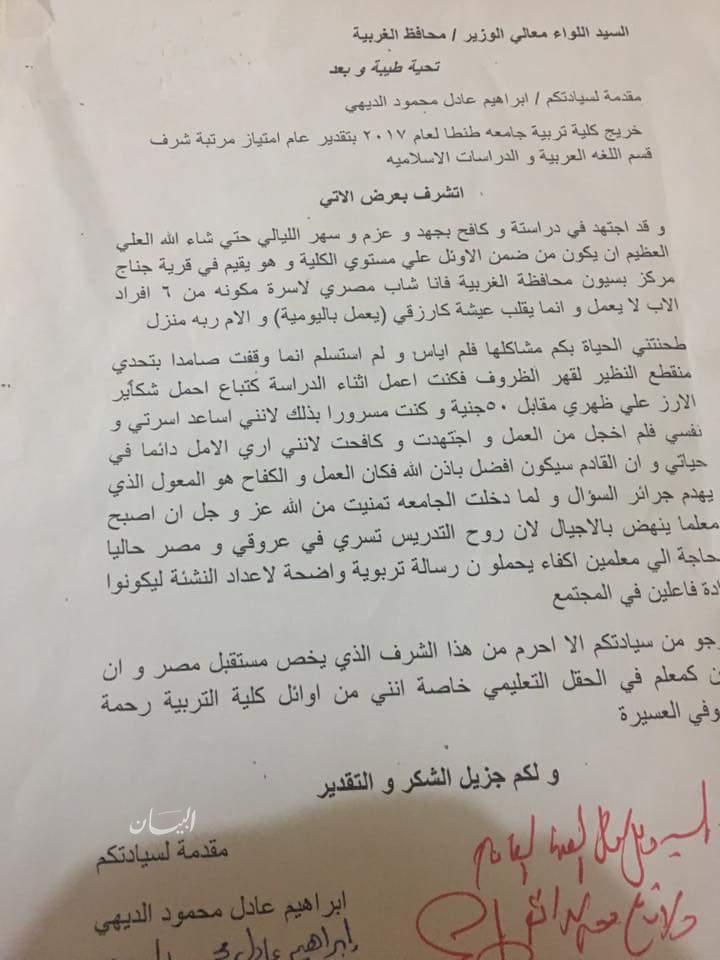 السيد اللواء معالي الوزير / محافظ الغربية
تحية طيبة و بعد
مقدمة لسيادتكم / ابراهيم عادل محمود الديهي
خريج كلية تربية جامعه طنطا لعام ٢٠١٧ بتقدير عام امتياز مرتبة شرف
قسم اللغه العربية و الدراسات الاسلاميه
اتشرف بعرض الاتي
و قد اجتهد في دراستة و كافح بجهد و عزم و سهر الليالي حتي شاء الله العلي
العظيم ان يكون من ضمن الاوئل علي مستوي الكلية و هو يقيم في قرية جناج
مركز بسيون محافظة الغربية فانا شاب مصري لاسرة مكونه من ٦ افراد
الاب لا يعمل و انما يقلب عيشة كارزقي (يعمل باليومية) و الام ربه منزل
طحنتني الحياة بكم مشاكلها فلم اياس و لم استسلم انما وقفت صامدا بتحدي
منقطع النظير لقهر الظروف فكنت اعمل اثناء الدراسة كتباع احمل شكاير
الارز علي ظهري مقابل ٥٠جنية و كنت مسرورا بذلك لانني اساعد اسرتي و
نفسي فلم اخجل من العمل و اجتهدت و كافحت لانني اري الامل دائما في
حياتي و ان القادم سيكون افضل باذن الله فكان العمل و الكفاح هو المعول الذي
يهدم جرائر السؤال و لما دخلت الجامعه تمنيت من الله عز و جل ان اصبح
معلما ينهض بالاجيال لان روح التدريس تسري في عروقي و مصر حاليا
حاجة الي معلمين اكفاء يحملو ن رسالة تربوية واضحة لاعداد النشئة ليكونوا
ادة فاعلين في المجتمع
رجو من سيادتكم الا احرم من هذا الشرف الذي يخص مستقبل مصر و ان
ن كمعلم في الحقل التعليمي خاصة انني من اوائل كلية التربية رحمة
وفي العسيرة
و لكم جزيل الشكر و التقدير
البيان
مقدمة لسيادتكم
ابراهيم عادل محمود الديهي
إبراهيم عادل